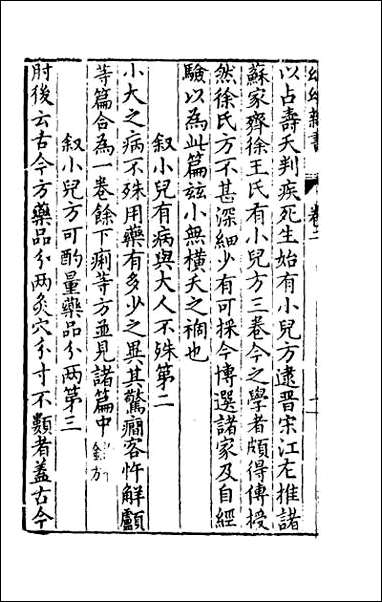 幼幼新書 卷二
以占壽夭判疾死生始有小兒方逮晋宋江左推諸
蘇家齊徐王氏有小兒方三卷今之學者頗得傳授
然徐氏方不甚深細少有可採今博選諸家及自經
驗以為此篇玆小無橫夭之禍也
叙小兒有病與大人不殊第二
小大之病不殊用藥有多少之異其驚癇客忤解顱
等篇合為一卷餘下痢等方並見諸篇中
叙小兒方可酌量藥品分兩第三
肘後云古今方藥品分兩灸穴分寸不類者盖古今